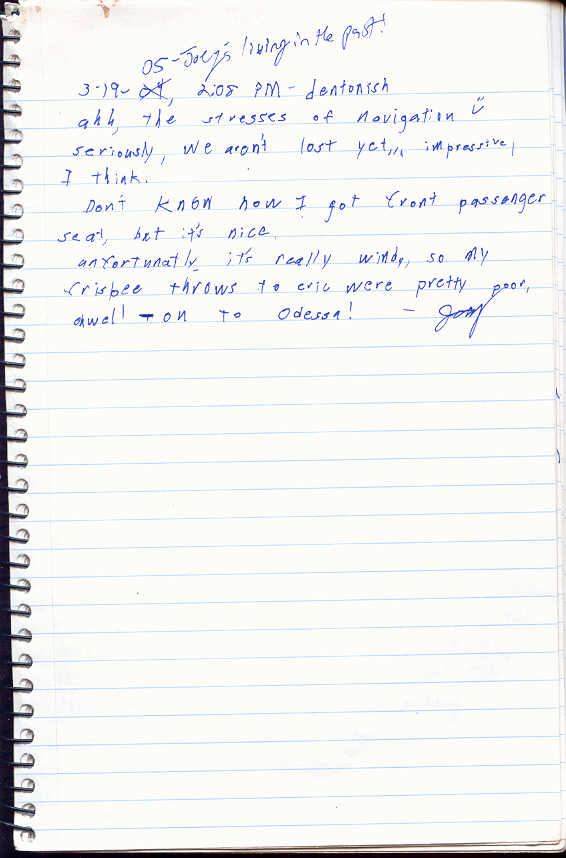 05 - Joey's living in the past!
3-19-04, 2:08 PM - dentonish
ahh, the stresses of navigation ü
seriously, we aren't lost yet,,, impressive,
I think.
Don't know how I got front passenger
seat, but it's nice.
unfortunatly, it's really windy, so my
frisbee throws to eric were pretty poor,
ohwell! - on to Odessa! - Joey